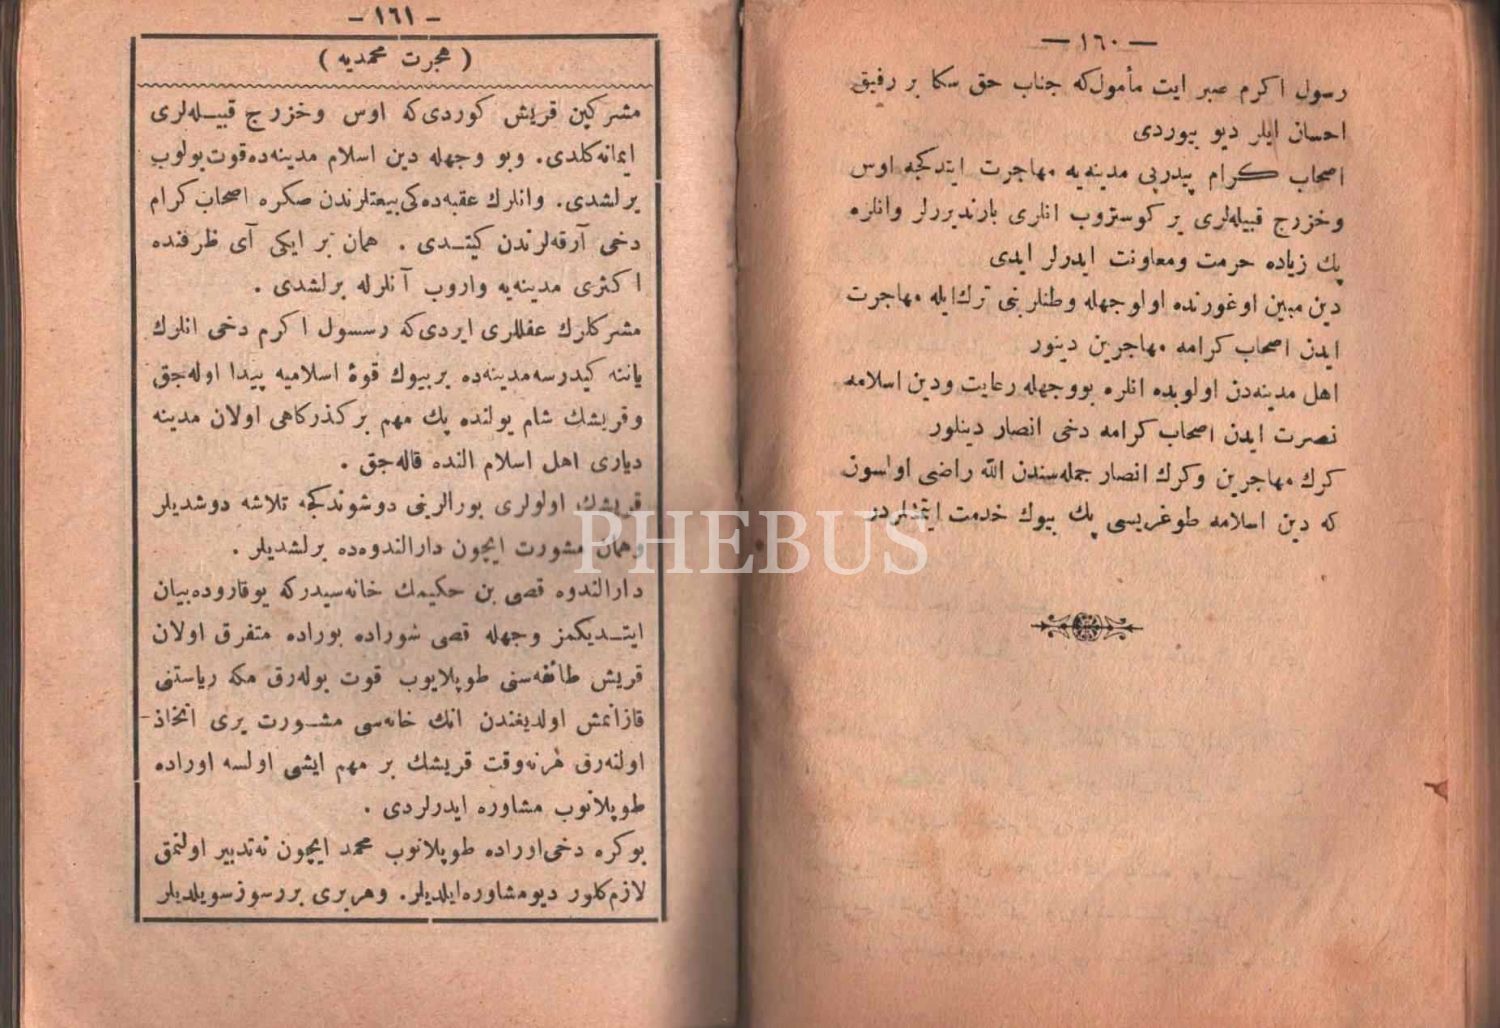 — ١٦٠ —
رسول اكرم صبر ایت مأمولكه جناب حق سكا بر رفیق
احسان ایلر دیو بیوردی
اصحاب كرام پیدرپی مدینه‌یه مهاجرت ایتدكجه اوس
وخزرج قبیله‌لری یر كوستروب انلری بارندیررلر وانلره
پك زیاده حرمت ومعاونت ایدرلر ایدی
دین مبین اوغورنده اولوجهله وطنلرینی ترك‌ایله مهاجرت
ایدن اصحاب كرامه مهاجرین دینور
اهل مدینه‌دن اولوبده انلره بووجهله رعایت ودین اسلامه
نصرت ایدن اصحاب كرامه دخی انصار دینلور
كرك مهاجرین وكرك انصار جمله‌سندن الله راضی اولسون
كه دین اسلامه طوغریسی پك بیوك خدمت ایتمشلردر
— ١٦١ —
( هجرت محمدیه )
مشركین قریش كوردی‌كه اوس وخزرج قبیله‌لری
ایمانه‌كلدی. وبو وجهله دین اسلام مدینه‌ده‌قوت‌بولوب
یرلشدی. وانلرك عقبه‌ده‌كی‌بیعتلرندن صكره اصحاب كرام
دخی آرقه‌لرندن كیتدی . همان بر ایكی آی ظرفنده
اكثری مدینه‌یه واروب آنلرله برلشدی .
مشركلرك عقللری ایردی‌كه رسسول اكرم دخی انلرك
یاننه كیدرسه‌مدینه‌ده بربیوك قوۀ اسلامیه پیدا اوله‌جق
وقریشك شام یولنده پك مهم بر كذركاهی اولان مدینه
دیاری اهل اسلام النده قاله‌جق .
قریشك اولولری بورالرینی دوشوندكجه تلاشه دوشدیلر
وهمان مشورت ایچون دارالندوه‌ده برلشدیلر .
دارالندوه قصی بن حكیمك خانه‌سیدركه یوقاروده‌بیان
ایتدیكمز وجهله قصی شوراده بوراده متفرق اولان
قریش طائفه‌سنی طوپلایوب قوت بوله‌رق مكه ریاستنی
قازانمش اولدیغندن انك خانه‌سی مشورت یری اتخاذ
اولنه‌رق هرنه‌وقت قریشك بر مهم ایشی اولسه اوراده
طوپلانوب مشاوره ایدرلردی .
بوكره دخی‌اوراده طوپلانوب محمد ایچون نه‌تدبیر اولنمق
لازم‌كلور دیومشاوره‌ایلدیلر. وهربری بررسوزسویلدیلر
PHEBUS